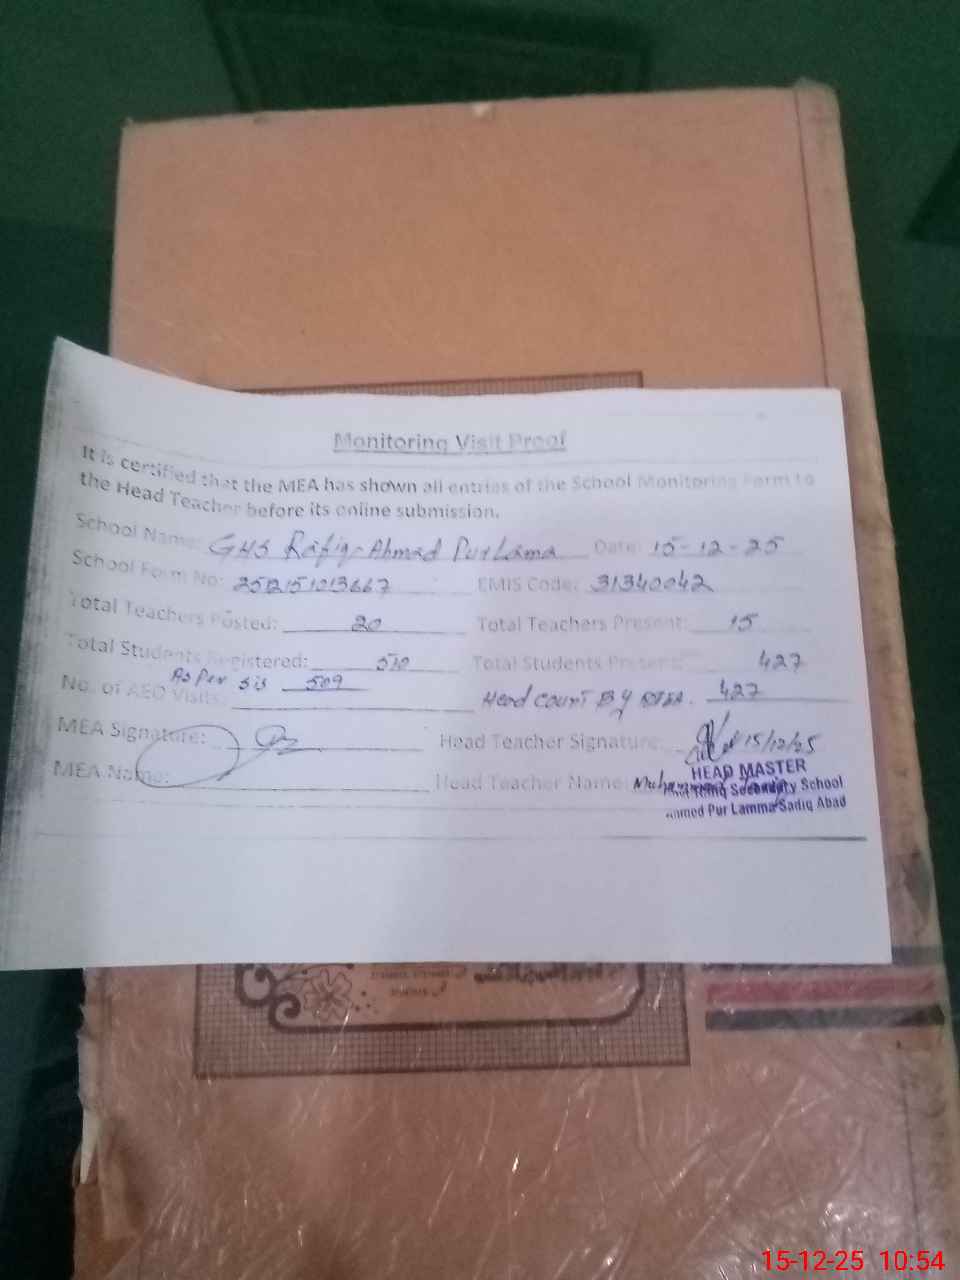 Monitoring Visit Proof
It is certified that the MEA has shown all entries of the School Monitoring Form to
the Head Teacher before its online submission.
School Name: GHS Rafiq-Ahmad Pur Lama Date: 15-12-25
School Form No: EMIS Code: 31340042
Total Teachers Posted: 20 Total Teachers Present: 15
Total Students Registered: 510 Total Students Present: 427
As Per sis 509
No. of AEO Visits: Head Count By 427
MEA Signature: Head Teacher Signature: 15/12/25
MEA Name: Head Teacher Name: Muhammad
HEAD MASTER
Secondary School
Pur Lamma Sadiq Abad
15-12-25 10:54